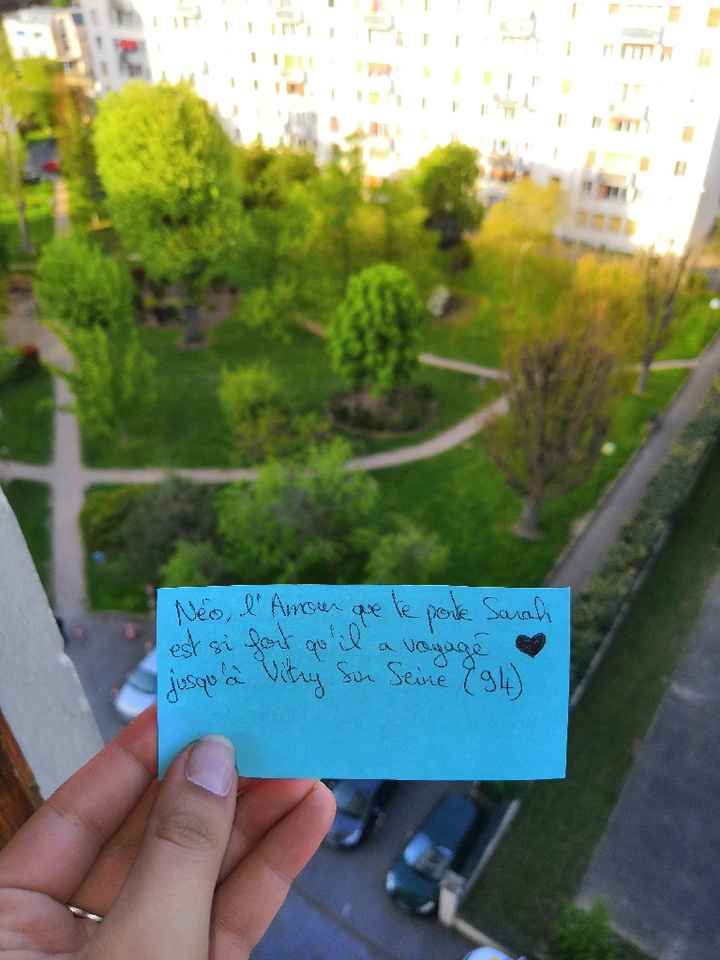 Néo, l'Amour que te porte Sarah
est si fort qu'il a voyagé ♥
jusqu'à Vitry Sur Seine (94)